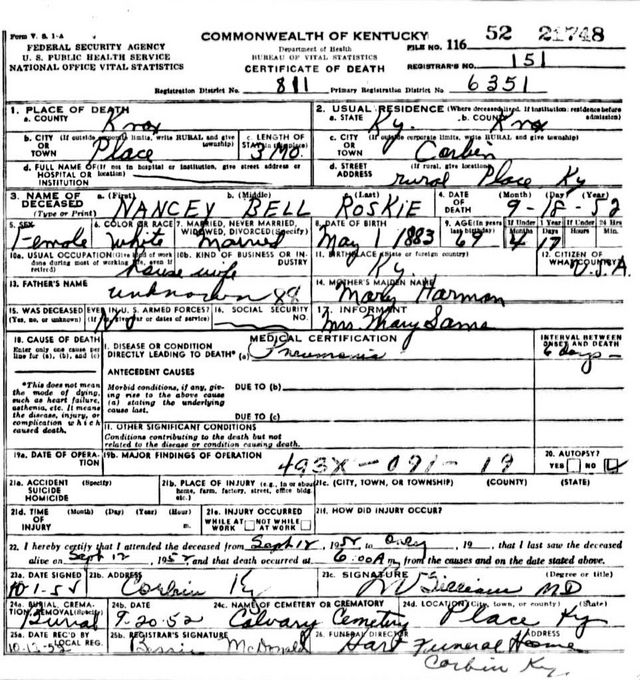 Form V. S. 1-A
FEDERAL SECURITY AGENCY
U. S. PUBLIC HEALTH SERVICE
NATIONAL OFFICE VITAL STATISTICS
COMMONWEALTH OF KENTUCKY
Department of Health
BUREAU OF VITAL STATISTICS
CERTIFICATE OF DEATH
FILE NO. 116 52 21748
REGISTRAR'S NO. 151
Registration District No. 811 Primary Registration District No. 6351
1. PLACE OF DEATH
a. COUNTY Knox
b. CITY (If outside corporate limits, write RURAL and give township) OR TOWN Place
c. LENGTH OF STAY (in this place) 3 Mo.
d. FULL NAME OF (If not in hospital or institution, give street address or location) HOSPITAL OR INSTITUTION
2. USUAL RESIDENCE (Where deceased lived. If institution: residence before admission)
a. STATE Ky. b. COUNTY Knox
c. CITY (If outside corporate limits, write RURAL and give township) OR TOWN Corbin
d. STREET ADDRESS (If rural, give location) rural Place Ky
3. NAME OF DECEASED (Type or Print) a. (First) NANCEY b. (Middle) BELL c. (Last) ROSKIE
4. DATE OF DEATH (Month) (Day) (Year) 9-18-52
5. SEX Female
6. COLOR OR RACE White
7. MARRIED, NEVER MARRIED, WIDOWED, DIVORCED (Specify) Married
8. DATE OF BIRTH May 1 1883
9. AGE (In years last birthday) 69 If Under 1 Year Months 4 Days 17 If Under 24 Hrs Hours Min.
10a. USUAL OCCUPATION (Give kind of work done during most of working life, even if retired) house wife
10b. KIND OF BUSINESS OR INDUSTRY
11. BIRTHPLACE (State or foreign country) Ky.
12. CITIZEN OF WHAT COUNTRY? U.S.A.
13. FATHER'S NAME unknown 88
14. MOTHER'S MAIDEN NAME Mary Harmon
15. WAS DECEASED EVER IN U. S. ARMED FORCES? (Yes, no, or unknown) (If yes, give war or dates of service) No
16. SOCIAL SECURITY NO.
17. INFORMANT Mrs Mary Sams
18. CAUSE OF DEATH
Enter only one cause per line for (a), (b), and (c)
*This does not mean the mode of dying, such as heart failure, asthenia, etc. It means the disease, injury, or complication which caused death.
MEDICAL CERTIFICATION
I. DISEASE OR CONDITION DIRECTLY LEADING TO DEATH* (a) Pneumonia
INTERVAL BETWEEN ONSET AND DEATH
6 days
ANTECEDENT CAUSES
Morbid conditions, if any, giving rise to the above cause (a) stating the underlying cause last.
DUE TO (b)
DUE TO (c)
II. OTHER SIGNIFICANT CONDITIONS
Conditions contributing to the death but not related to the disease or condition causing death.
19a. DATE OF OPERATION
19b. MAJOR FINDINGS OF OPERATION
493X-091-19
20. AUTOPSY? YES NO
21a. ACCIDENT SUICIDE HOMICIDE (Specify)
21b. PLACE OF INJURY (e.g., in or about home, farm, factory, street, office bldg., etc.)
21c. (CITY, TOWN, OR TOWNSHIP) (COUNTY) (STATE)
21d. TIME OF INJURY (Month) (Day) (Year) (Hour) m.
21e. INJURY OCCURRED WHILE AT WORK NOT WHILE AT WORK
21f. HOW DID INJURY OCCUR?
22. I hereby certify that I attended the deceased from Sept 12, 1952 to only, 19 , that I last saw the deceased
alive on Sept 12, 1952, and that death occurred at 6:00 Am, from the causes and on the date stated above.
23a. DATE SIGNED
23b. ADDRESS Corbin Ky
23c. SIGNATURE (Degree or title) MD
24a. BURIAL, CREMATION, REMOVAL (Specify) Burial
24b. DATE 9-20-52
24c. NAME OF CEMETERY OR CREMATORY Calvary Cemetery
24d. LOCATION (City, town, or county) (State) Place Ky
25a. DATE REC'D BY LOCAL REG. 10-13-52
25b. REGISTRAR'S SIGNATURE Bessie McDonald
26. FUNERAL DIRECTOR ADDRESS Hart Funeral Home
Corbin Ky.